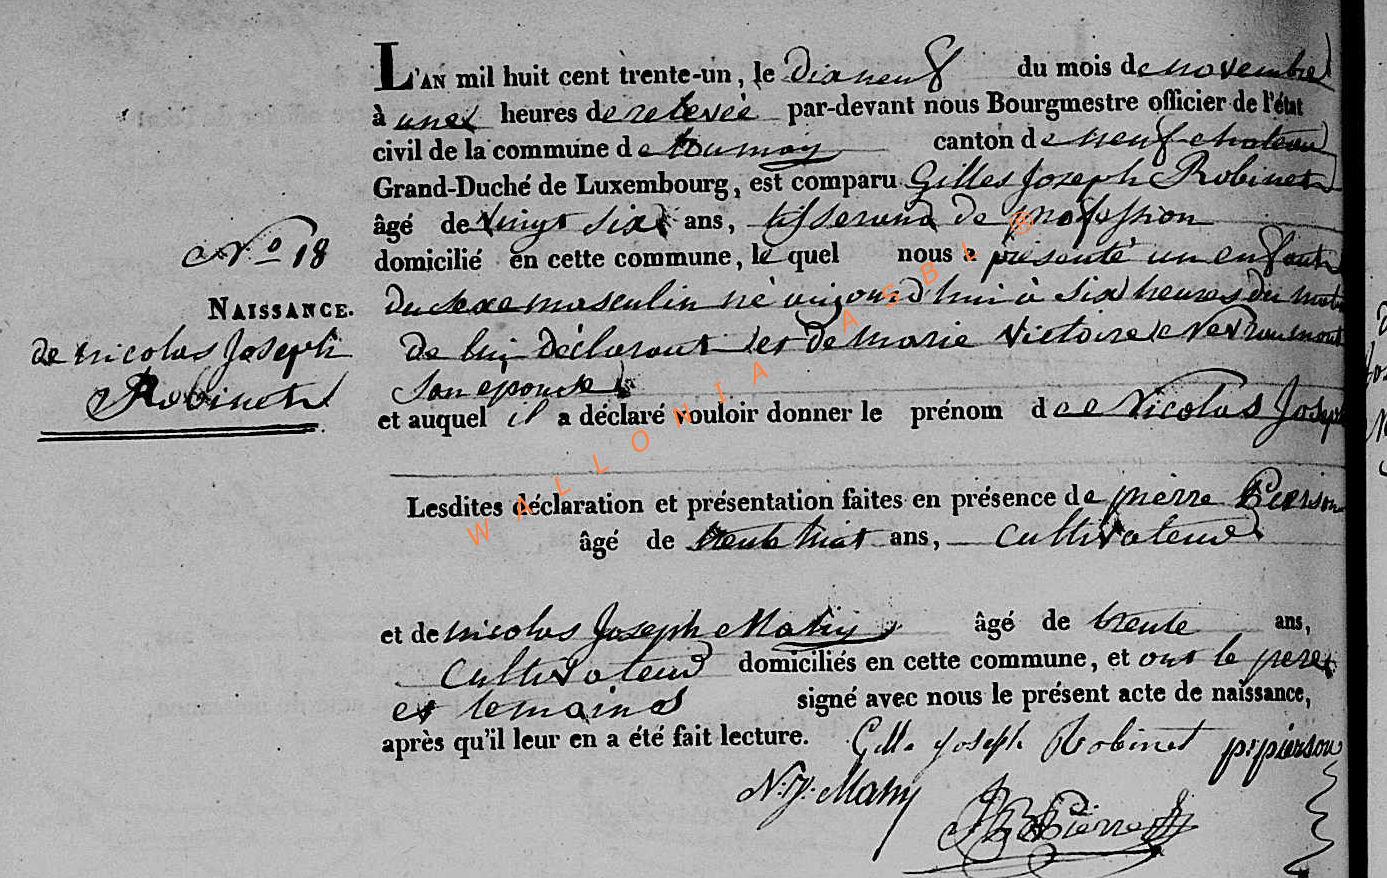 L'AN mil huit cent trente-un, le dixneuf du mois de novembre
à une heures de relevée par-devant nous Bourgmestre officier de l'état
civil de la commune de tournay canton de neufchateau
Grand-Duché de Luxembourg, est comparu Gilles Joseph Robinet
âgé de vingt six ans, tisserand de profession
domicilié en cette commune, le quel nous a présenté un enfant
du sexe masculin né aujourd'hui à six heures du matin
de lui déclarant et de marie Victoire
son epouse
et auquel il a déclaré vouloir donner le prénom de Nicolas Joseph
No 18
NAISSANCE.
de nicolas Joseph
Robinet
Lesdites déclaration et présentation faites en présence de pierre Pierson
âgé de trente ans, cultivateur
et de nicolas Joseph Mahy âgé de trente ans,
cultivateur domiciliés en cette commune, et ont le pere
et temoins signé avec nous le présent acte de naissance,
après qu'il leur en a été fait lecture. Gille Joseph Robinet p. pierson
N. J. Mahy Pierre
WALLONIA ASBL ®